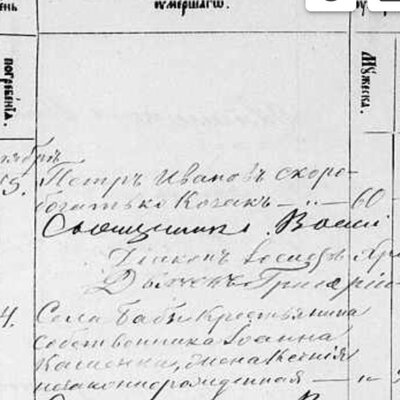 ень
умершаго.
погребенія.
Мужеска.
5. Петръ Ивановъ Скоро-
богатько Козакъ — „ — 60
Священникъ Васи
Діаконъ Іосифъ
Дьячекъ Григорій
4. Села Бабы Крестьянина
собственника Іоанна
незаконнорожденная — „